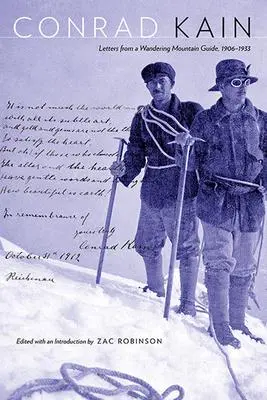 CONRAD KAIN
Letters from a Wandering Mountain Guide, 1906–1933
It is not much the world
with all its subtle art,
and gold and gems are not the
To satisfy the heart.
But oh! if those who
The altar and the
have gentle words and
How beautiful is earth!
In remembrance of
yours truly
Conrad Kain
October 31st 1912
Reichenau
Edited with an Introduction by ZAC ROBINSON